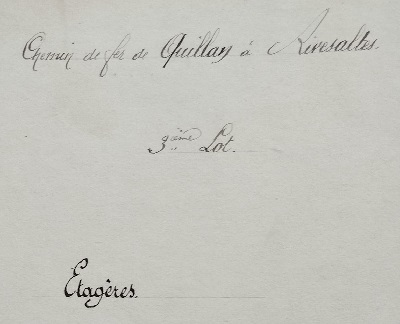 Chemin de fer de Quillan à Rivesaltes.
3ème Lot.
Etagères.